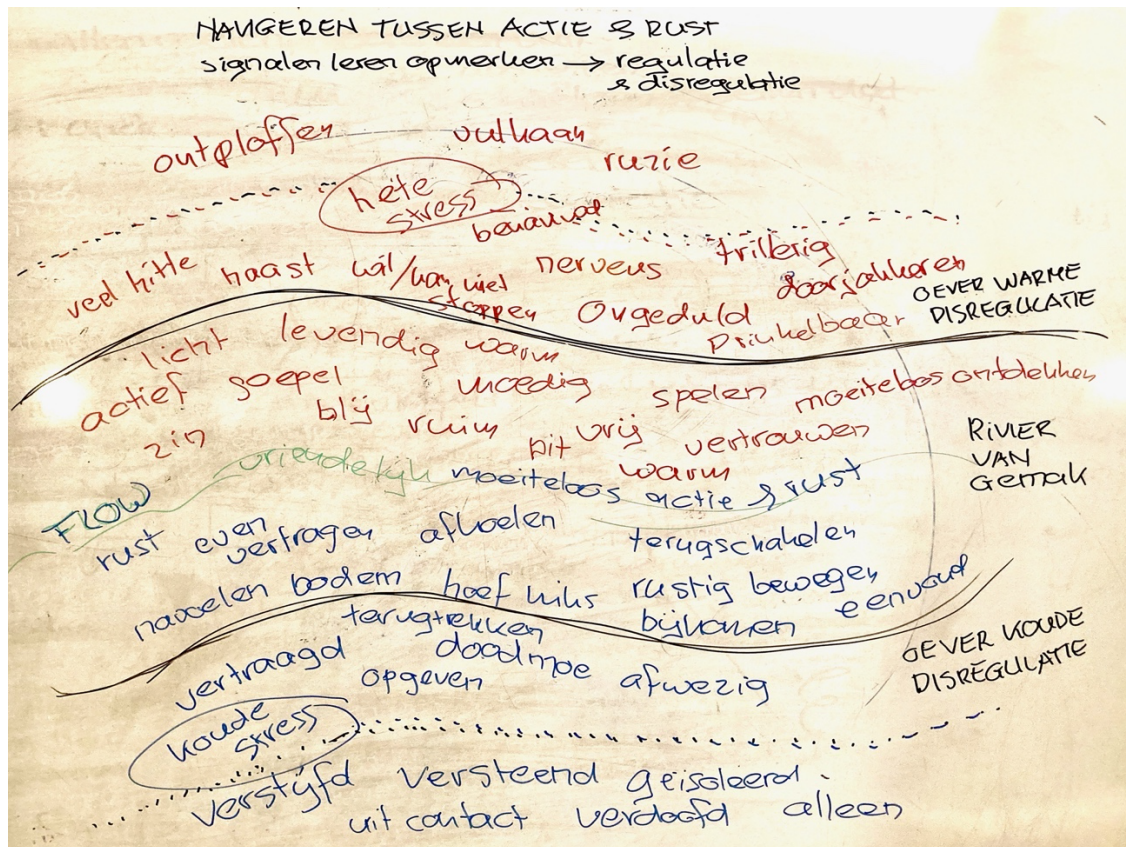 NAVIGEREN TUSSEN ACTIE & RUST
signalen leren opmerken → regulatie
& disregulatie
ontploffen vulkaan
ruzie
hete
stress
benauwd
veel hitte haast wil/kan niet
stoppen
nerveus trillerig
ongeduld doorjakkeren
prikkelbaar
OEVER WARME
DISREGULATIE
licht levendig warm
actief soepel moedig spelen moeiteloos ontdekken
zin blij ruim pit vrij vertrouwen
warm
RIVIER
VAN
Gemak
FLOW vriendelijk moeiteloos actie & rust
rust even
vertragen afkoelen terugschakelen
navoelen bodem hoef niks rustig bewegen
bijkomen eenvoud
terugtrekken
vertraagd doodmoe afwezig
opgeven
OEVER KOUDE
DISREGULATIE
koude
stress
verstijfd versteend geïsoleerd
uit contact verdoofd alleen